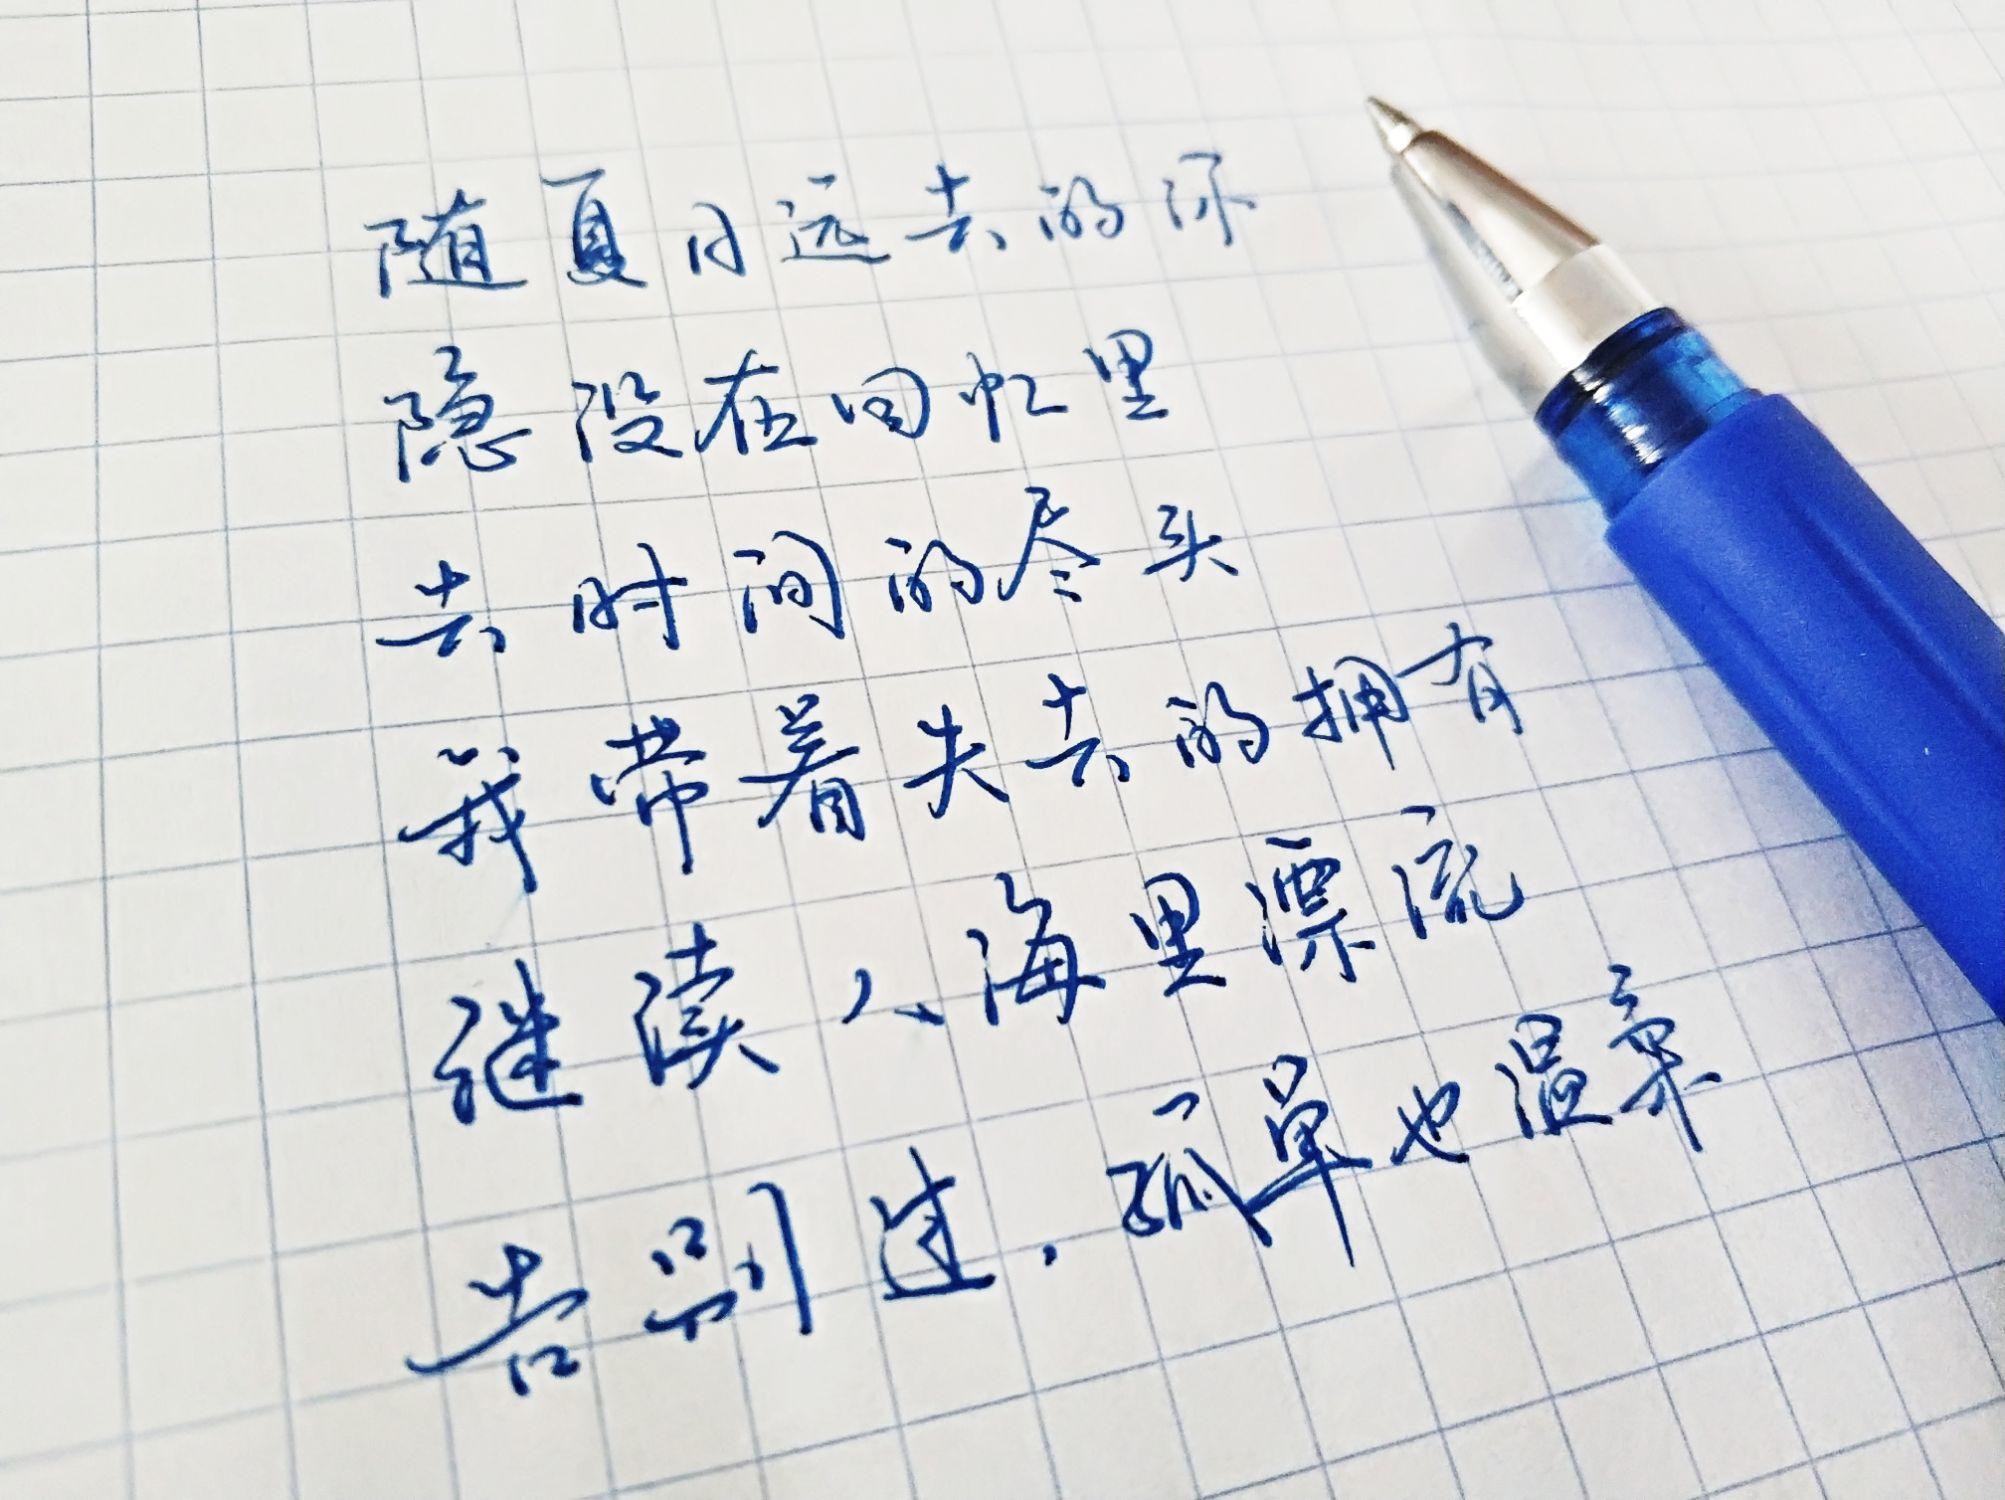 随夏日远去的你
隐没在回忆里
去时间的尽头
我带着失去的拥有
继续人海里漂流
告别过，孤单也温柔